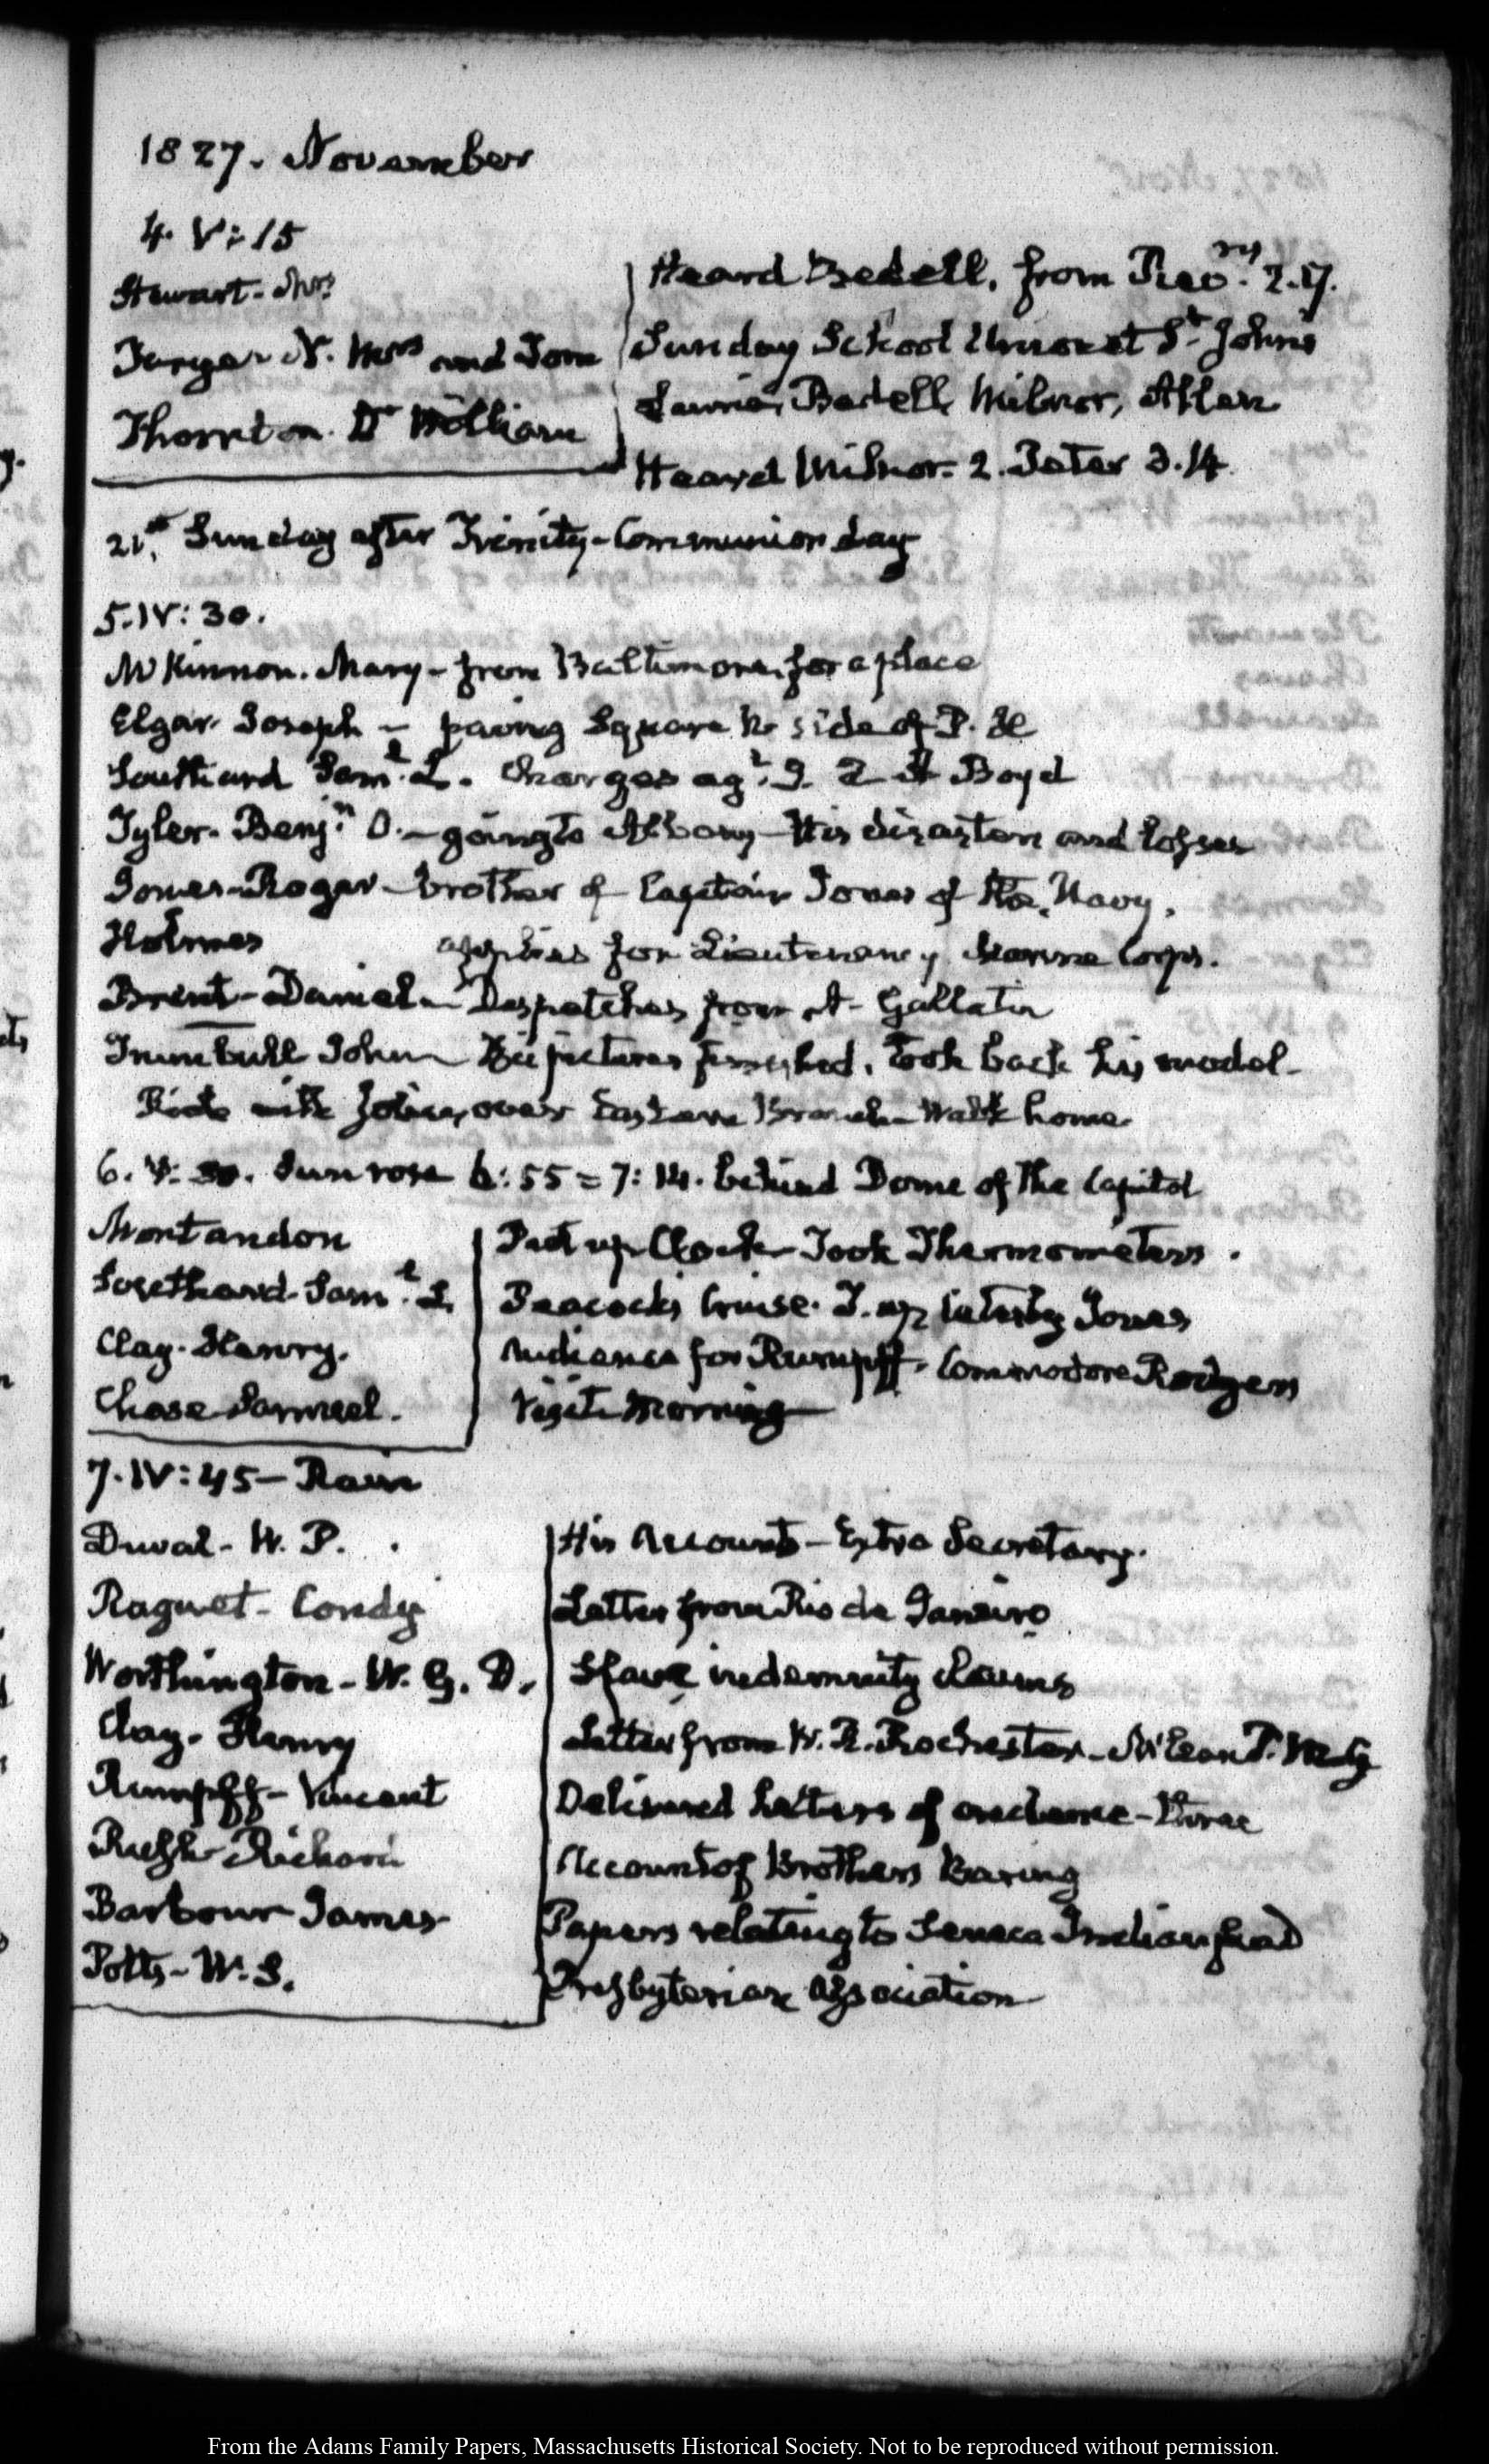 1827. November
4. V:15
Stewart. Mrs
Heard Bedell, from Rev. 2.17.
N. Mrs and Son
Sunday School St. Johns
Thornton. Dr William
Bedell, Milnor, Allen
Heard Milnor. 2. Peter 3.14.
21st. Sunday after Trinity - Communion day
5. IV:30.
McKinnon. Mary - from Baltimore for a place
Elgar. Joseph - paving Square N. side of P. H
Southard Saml. L. Charges agt. Boyd
Tyler. Benjn. O. - going to Albany - His disasters and losses
Jones - Roger - brother of Captain Jones of the Navy.
Holmes applies for Lieutenancy Marine Corps.
Brent - Daniel - Despatches from A. Gallatin
Trumbull John - His pictures finished. Took back his model -
Ride with Johnson over Eastern Branch - Walk home
6. V: 30. Sun rose 6:55 = 7:14. behind Dome of the Capitol
Montandon
Put up Clock - Took Thermometers.
Southard. Saml. L.
Peacock's Cruise. T. ap Catesby Jones
Clay. Henry.
Audience for Rumpff. Commodore Rodgers
Chase Samuel.
Visit Morning
7. IV:45 - Rain
Duval - W. P.
His Accounts - Extra Secretary.
Raguet - Condy
Letter from Rio de Janeiro
Worthington - W. G. D.
Slave indemnity claims
Clay. Henry
Letter from W. B. Rochester
Rumpff - Vincent
Delivered letters of credence - three
Rush - Richard
Account of Brothers Baring
Barbour James
Papers relating to Seneca Indian fund
Potts - W. S.
Presbyterian Association
From the Adams Family Papers, Massachusetts Historical Society. Not to be reproduced without permission.